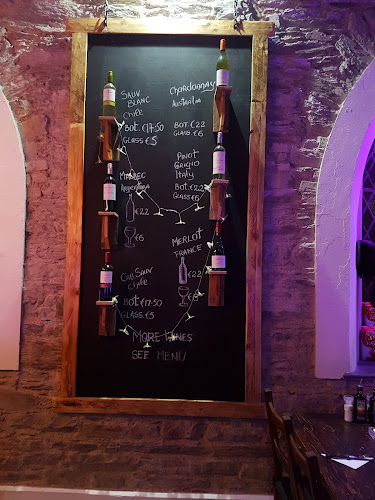 SAUV
BLANC
CHILE
BOT. €17.50
GLASS €5
CHARDONNAY
AUSTRALIA
BOT. €22
GLASS. €6
MALBEC
Argentina
€22
€6
PINOT
GRIGIO
ITALY
BOT. €22
GLASS €6
CAB SAUV
CHILE
BOT €17.50
GLASS. €5
MERLOT
FRANCE
€22
€6
MORE WINES
SEE MENU